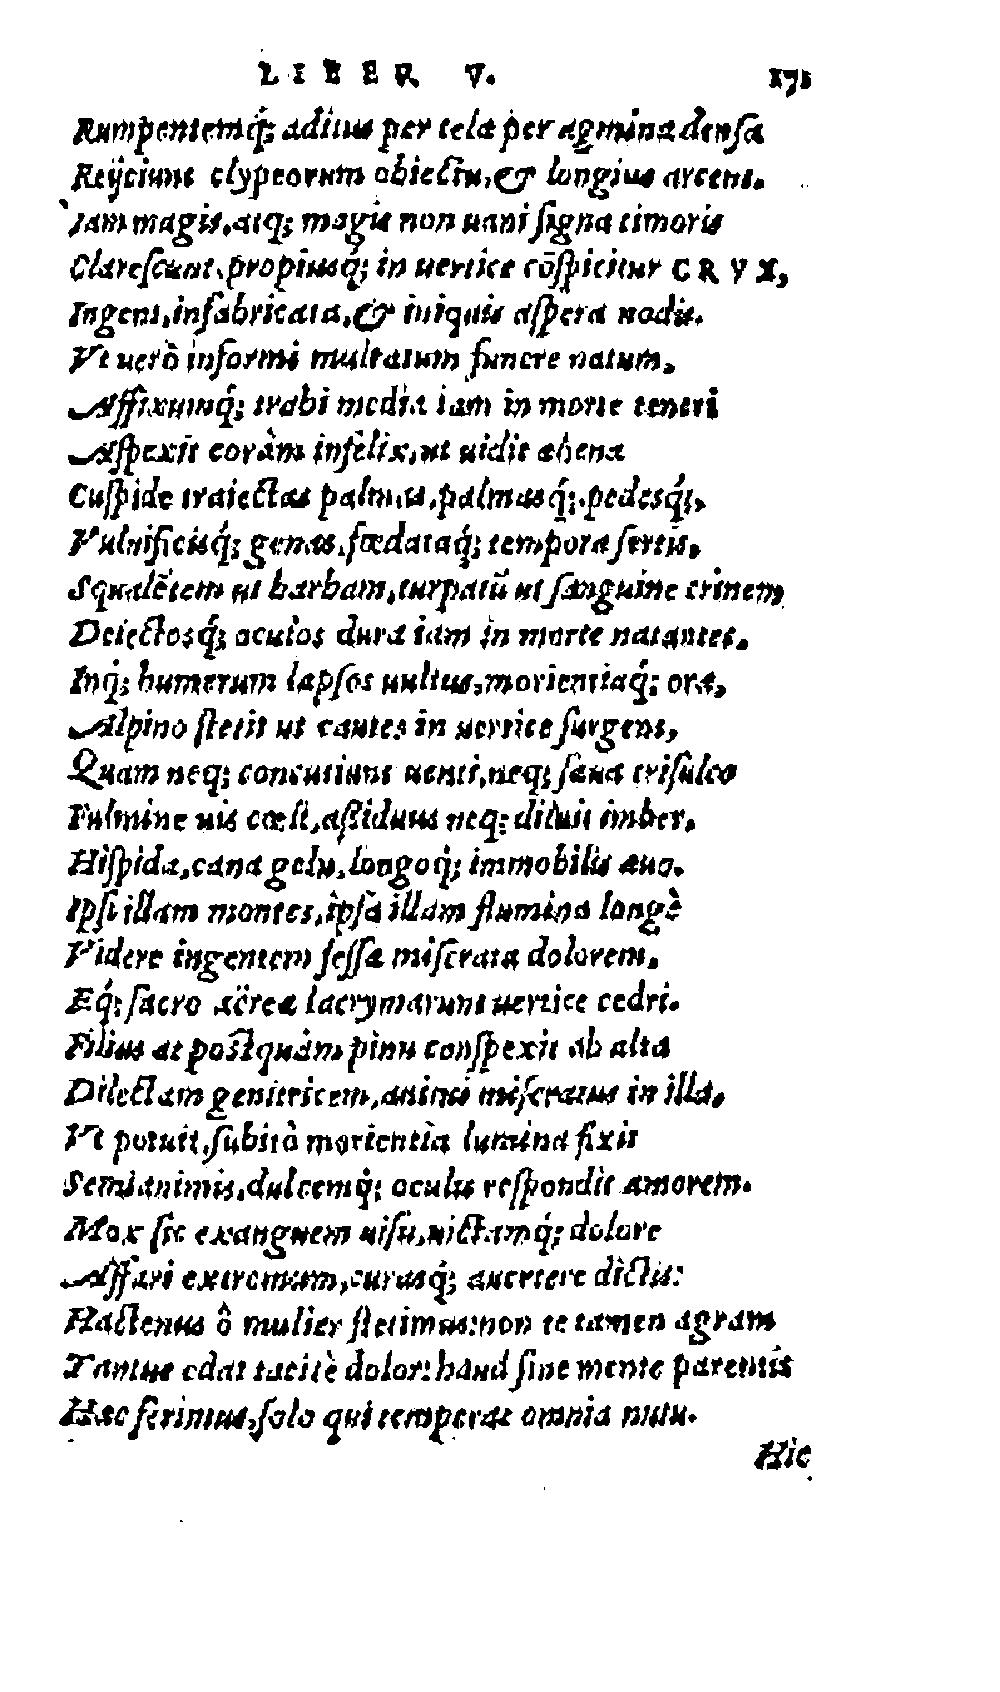 LIBER V. 171
Rumpentemq́; aditus per tela per agmina densa
Reijciunt clypeorum obiectu, & longius arcent.
Iam magis, atq; magis non uani signa timoris
Clarescunt, propiusq́; in uertice cōspicitur CRVX,
Ingens, infabricata, & iniquis aspera nodis.
Vt uerò informi multatum funere natum,
Affixumq́; trabi media iam in morte teneri
Aspexit coràm infelix, ut uidit ahena
Cuspide traiectas palmas, palmasq́;, pedesq́;,
Vulnificisq́; genas, fœdataq́; tempora sertis,
Squalētem ut barbam, turpatū ut sanguine crinem,
Deiectosq́; oculos dura iam in morte natantes.
Inq́; humerum lapsos uultus, morientiaq́; ora,
Alpino stetit ut cautes in uertice surgens,
Quam neq; concutiunt uenti, neq; sæua trisulco
Fulmine uis cœli, assiduus neq; diluit imber,
Hispida, cana gelu, longoq́; immobilis æuo.
Ipsi illam montes, ipsa illam flumina longè
Videre ingentem fessa miserata dolorem.
Eq́; sacro aëreæ lacrymarunt uertice cedri.
Filius at postquàm pinu conspexit ab alta
Dilectam genitricem, animi miseratus in illa,
Vt potuit, subitò morientia lumina fixit
Semianimis, dulcemq́; oculis respondit amorem.
Mox sic exanguem uisu, uictamq́; dolore
Affari extremum, curasq́; auertere dictis:
Hactenus ô mulier stetimus: non te tamen ægram
Tantus edat tacitè dolor: haud sine mente parentis
Hæc ferimus, solo qui temperat omnia nutu.
Hic